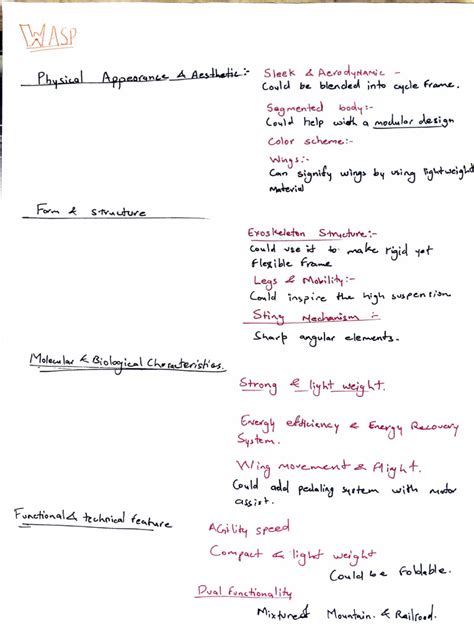 WASP
Physical Appearance & Aesthetic:- Sleek & Aerodynamic -
Could be blended into cycle frame.
Segmented body:-
Could help with a modular design
Color scheme:-
Wings:-
Can signify wings by using lightweight
Material
Form & structure
Exoskeleton Structure:-
Could use it to make rigid yet
Flexible Frame
Legs & Mobility:-
Could inspire the high suspension
Sting Mechanism :-
Sharp angular elements.
Molecular & Biological Characteristics.
Strong & light weight.
Energy efficiency & Energy Recovery
System.
Wing movement & flight.
Could add pedaling system with motor
assist.
Functional & technical feature Agility speed
Compact & light weight
Could be foldable.
Dual Functionality
Mixture of Mountain. & Railroad.